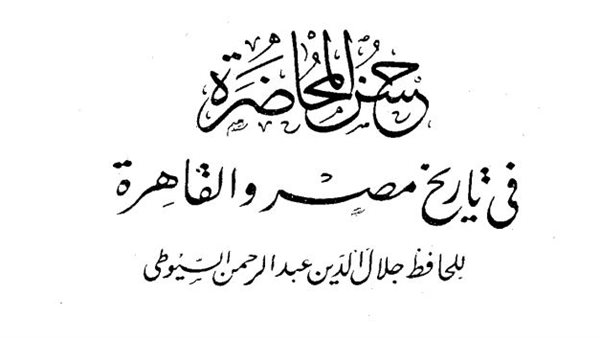 حسن المحاضرة
في تاريخ مصر والقاهرة
للحافظ جلال الدين عبد الرحمن السيوطي